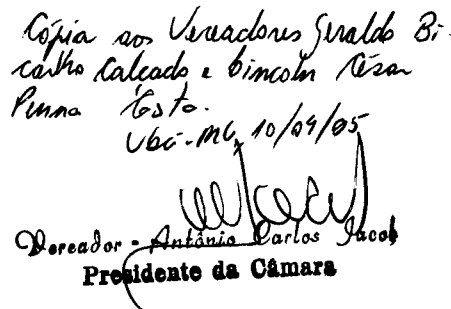 Cópia aos Vereadores Geraldo Bi-
calho Calçado e Lincoln César
Penna Costa.
Ubá-MG, 10/04/95
Vereador - Antônio Carlos Jacob
Presidente da Câmara